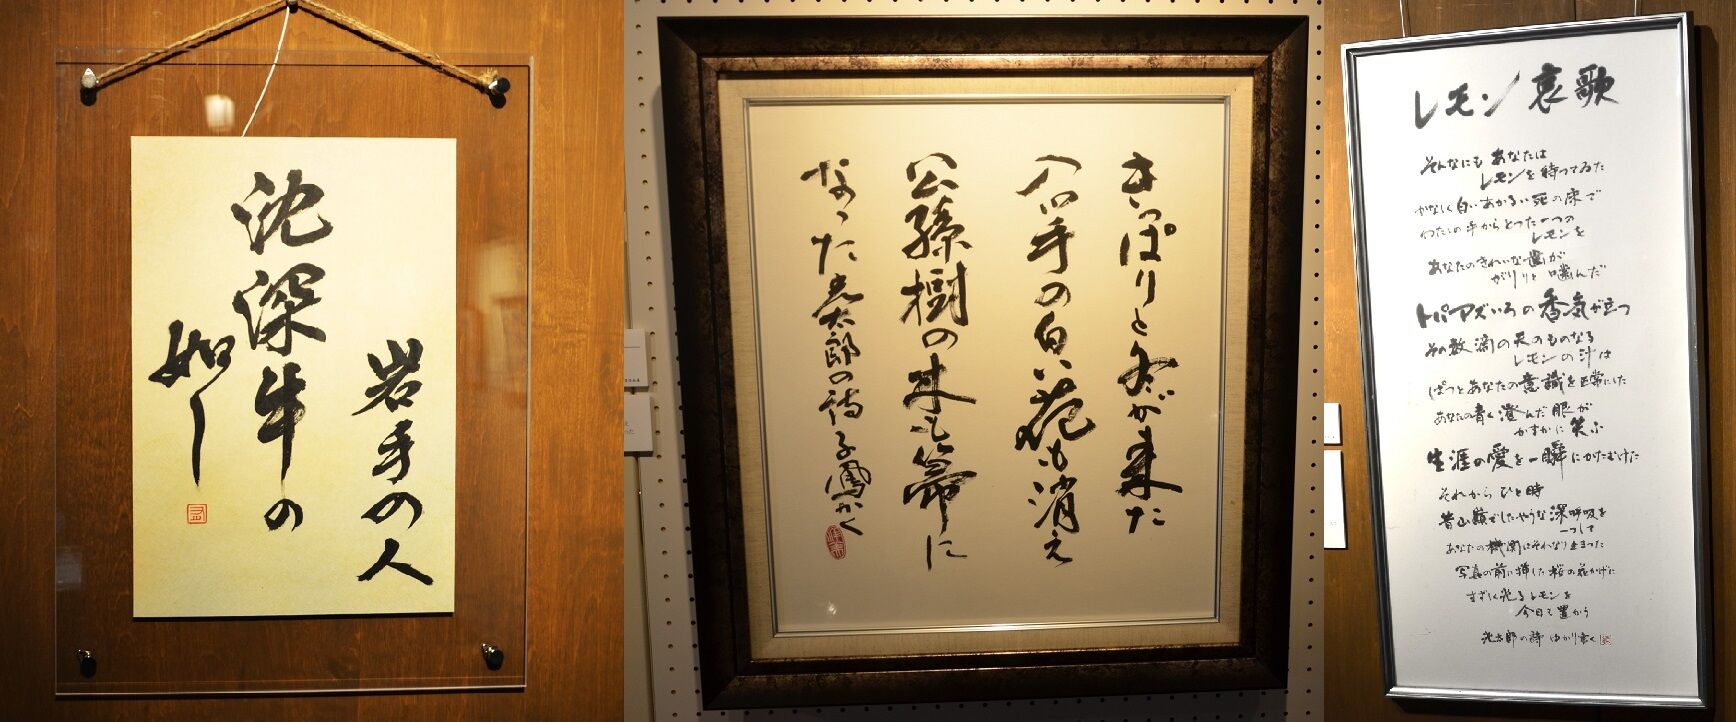 岩手の人
沈深牛の
如し
きっぱりと冬が来た
八つ手の白い花も消え
公孫樹の木も箒に
なった 光太郎の詩 子鳳かく
レモン哀歌
そんなにもあなたは
レモンを待つてゐた
かなしく白いあかるい死の床で
わたしの手からとつた一つの
レモンを
あなたのきれいな歯が
がりりと噛んだ
トパアズいろの香気が立つ
その数滴の天のものなる
レモンの汁は
ぱつとあなたの意識を正常にした
あなたの青く澄んだ眼が
かすかに笑ふ
生涯の愛を一瞬にかたむけた
それからひと時
昔山巓でしたやうな深呼吸を
一つして
あなたの機関はそれなり止まつた
写真の前に挿した桜の花かげに
すずしく光るレモンを
今日も置かう
光太郎の詩 ゆかり書く